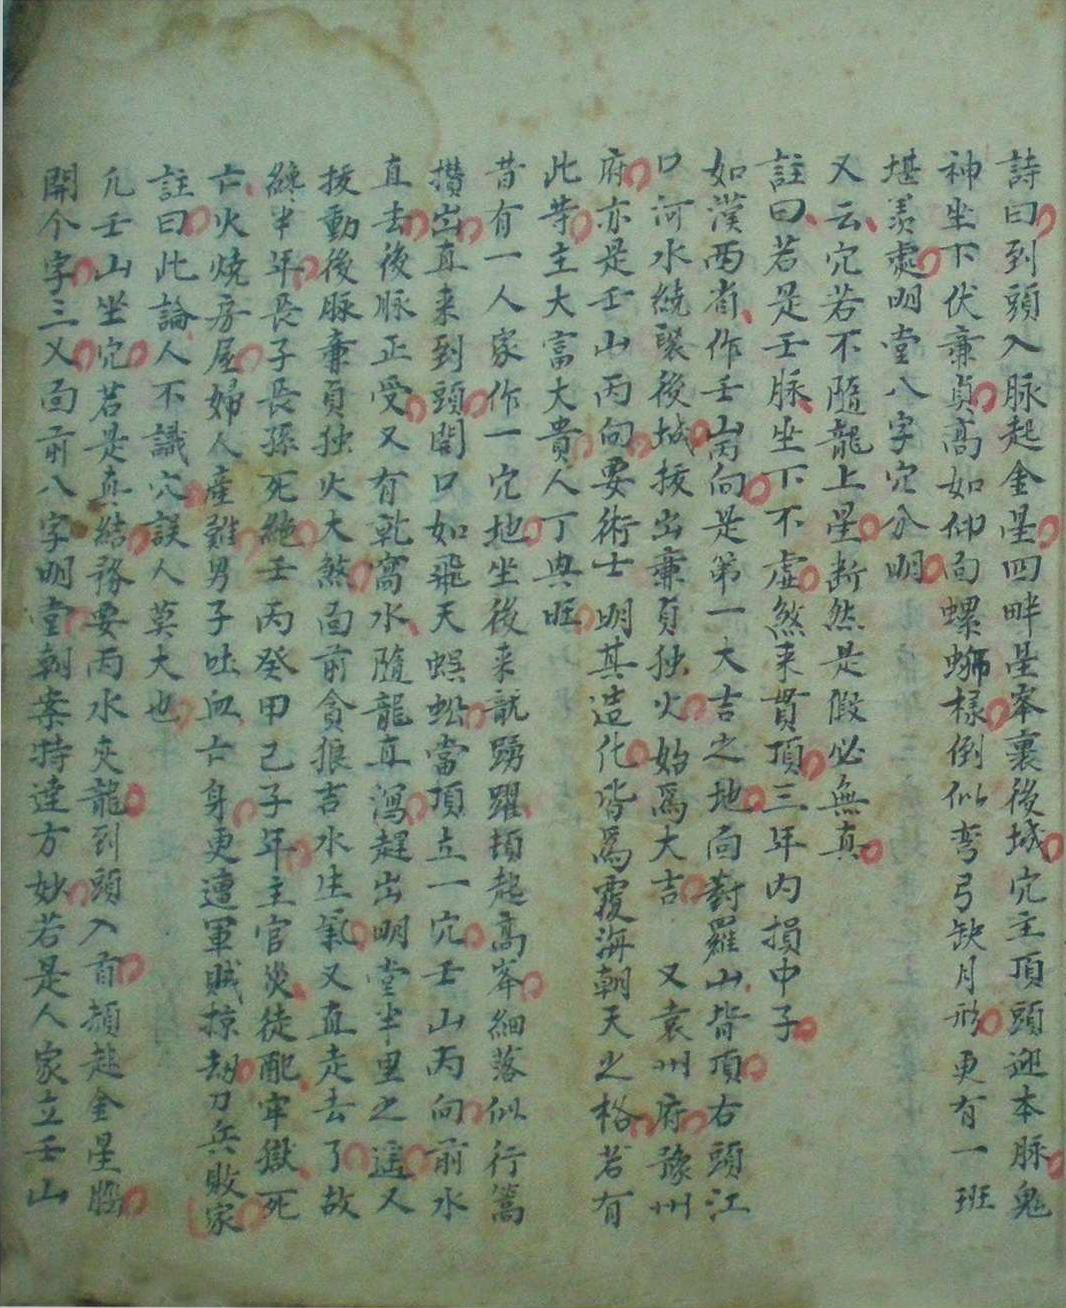 詩曰到頭入脉起金星四畔星峯裹後城穴主頂頭迎本脉鬼
神坐下伏亷貞髙如仰面螺螄樣倒似弯弓缺月形更有一班
堪羡處明堂八字穴分明
又云穴若不隨龍上星断然是假必無真
註曰若是壬脉坐下不虛煞来貫頂三年内損中子
如漢西省作壬山丙向是第一大吉之地面對羅山皆頂右頭江
口河水繞裂後城拔出亷貞独火始為大吉 又袁州府豫州
府亦是壬山丙向要術士明其造化皆為覆海朝天之格若有
此等主大富大貴人丁興旺
昔有一人家作一穴地坐後来龍踴躍頓起髙峯細落似行篙
攢出直来到頭開口如飛天蜈蚣當頂立一穴壬山丙向前水
直去後脉正受又有乾窩水隨龍直瀉趕出明堂半里之遠又
拔動後脉亷貞独火大煞面前貪狼吉水生氣又直走去了故
緣半年長子長孫死絶壬丙癸甲己子年主官災徒配牢獄死
亡火燒房屋婦人産難男子吐血亡身更遭軍賊掠刼刀兵敗家
註曰此論人不識穴誤人莫大也
凡壬山坐穴若是真結務要两水夾龍到頭入首頓起金星腦
開个字三义面前八字明堂朝案特達方妙若是人家立壬山